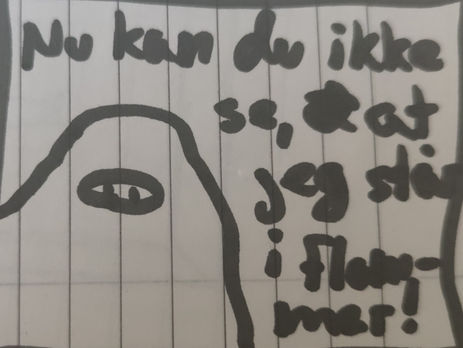 Nu kan du ikke
se, at
jeg står
i flam-
mer!